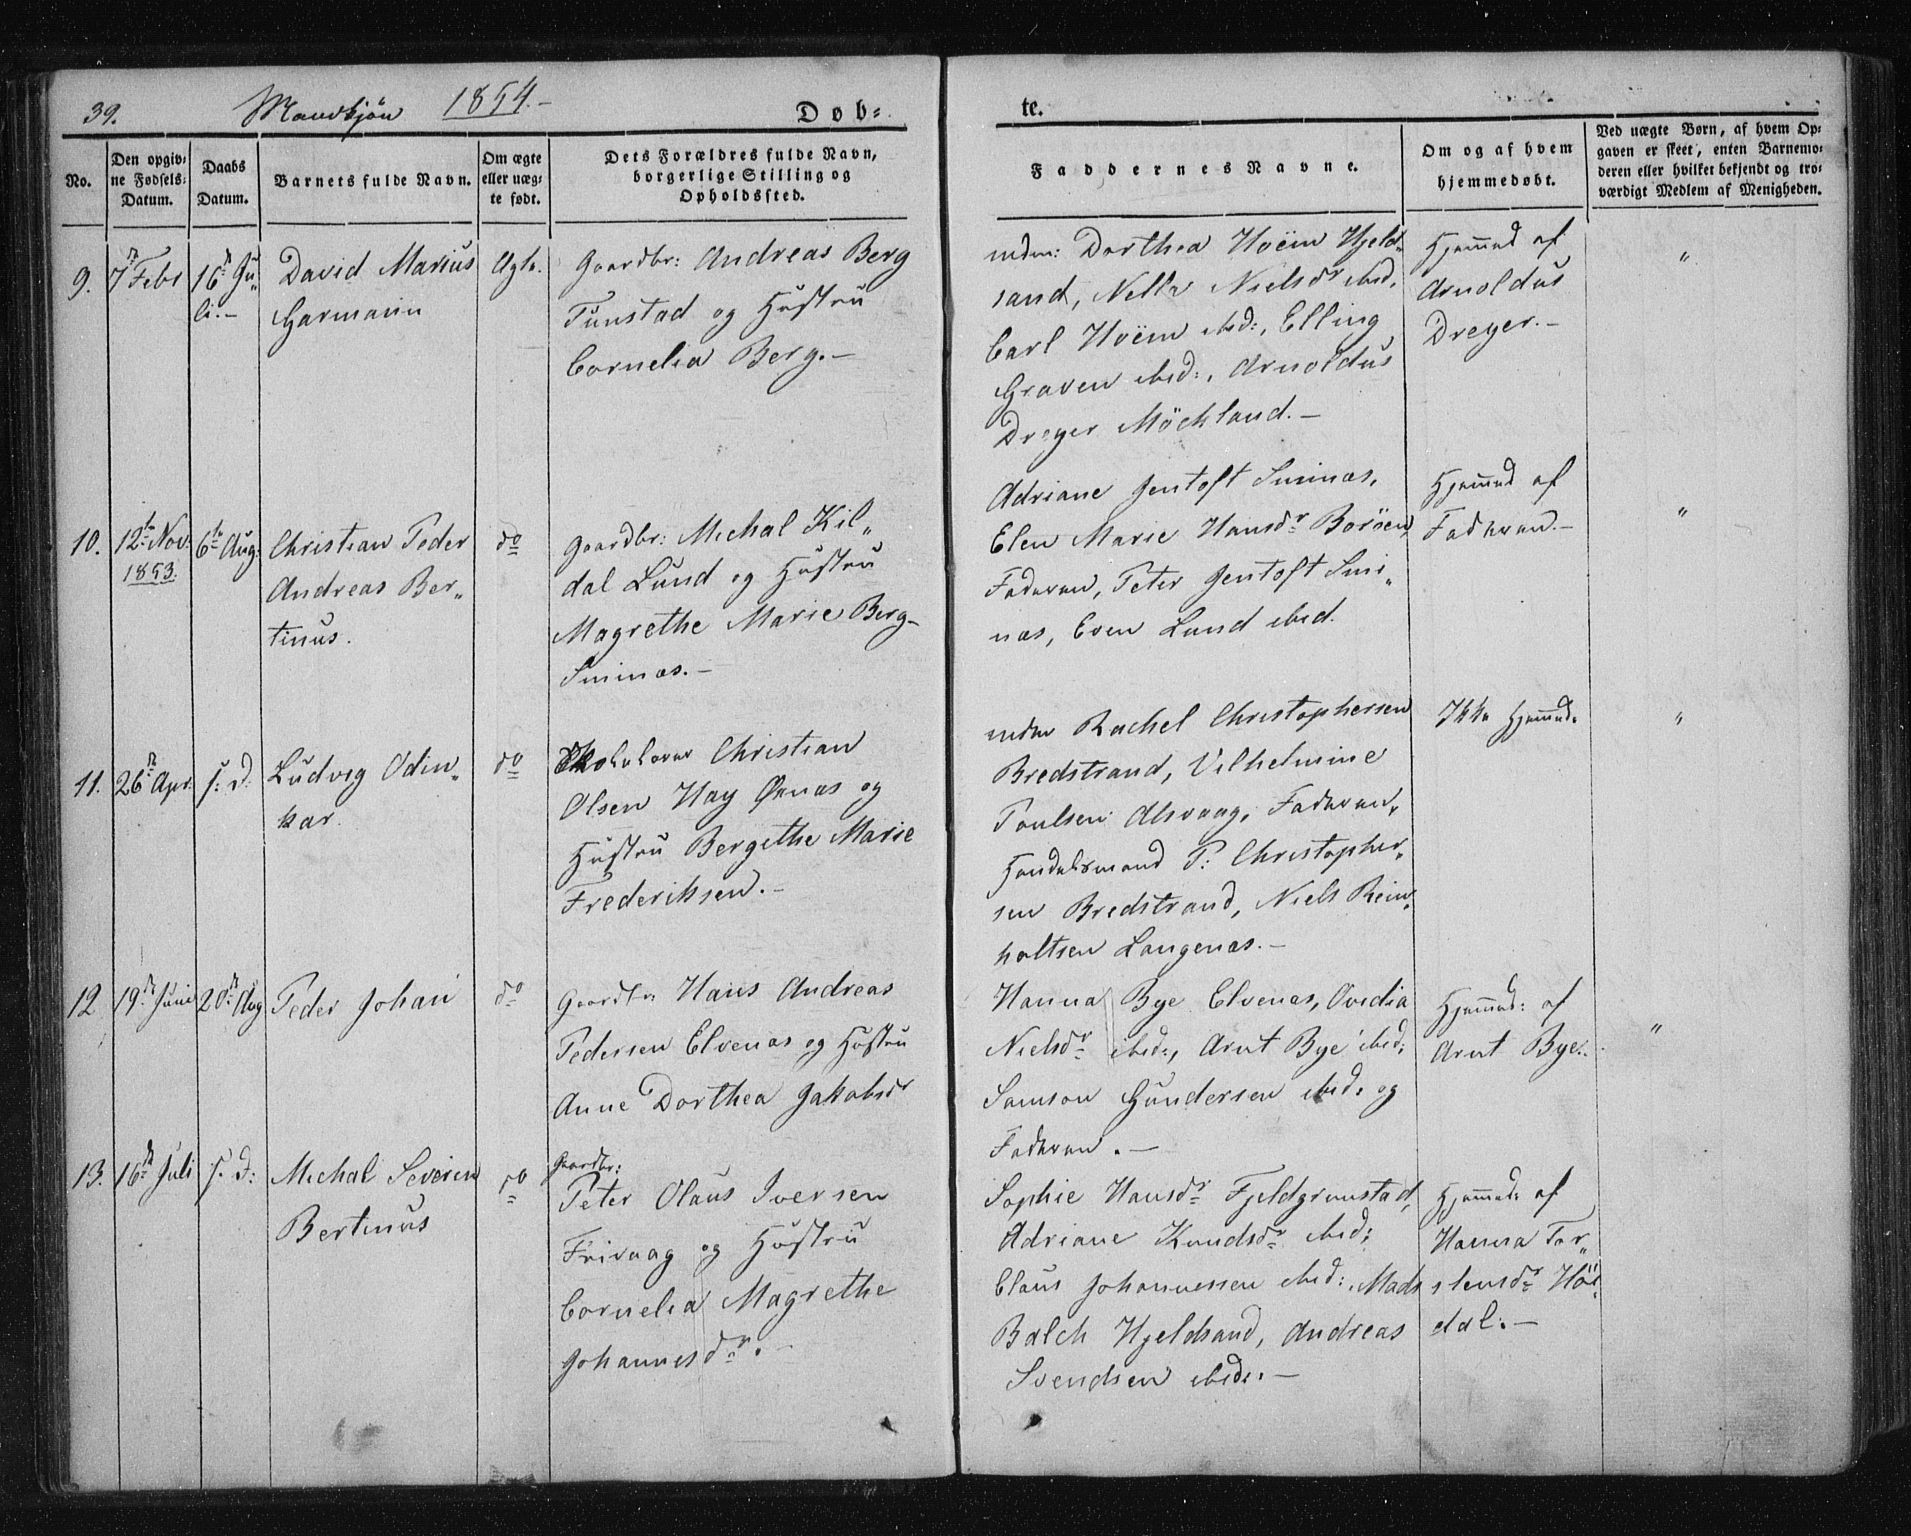 39. Mandkjøn 1854.- Døb=
te.
No.
Den opgiv=
ne Fødsels=
Datum.
Daabs
Datum.
Barnets fulde Navn.
Om ægte
eller uæg=
te født.
Dets Forældres fulde Navn,
borgerlige Stilling og
Opholdssted.
Faddernes Navne.
Om og af hvem
hjemmedøbt.
Ved uægte Børn, af hvem Op=
gaven er skeet, enten Barnemo=
deren eller hvilket bekjendt og tro=
værdigt Medlem af Menigheden.
9.
7de Febr
16de Ju„
li.-
David Marius
Garmann
Ægte.
Gaardbr: Andreas Berg
Tunstad og Hustru
Cornelia Berg.-
Dorthea Hoëm Hjeld„
sand, Nella Nielsdr ibid,
Carl Hoëm ibid:, Elling
Graven ibid:, Arnoldus
Dreyer Möckland.-
Hjemmed af
Arnoldus
Dreyer.-
"
10.
12te Nov:
1853.
6te Aug:
Christian Peder
Andreas Ber„
tinus.
do
Gaardbr: Michal Kil„
dal Lund og Hustru
Magrethe Marie Berg-
Sminæs.-
Adriane Jentoft Sminæs,
Elen Marie Hansdr Borøen,
Faderen, Peter Jentoft Smi„
næs, Even Lund ibid.
Hjemmed af
Faderen.-
"
11.
26de Apr.
s: D.
Ludvig Odin„
kar.
do
Skolelærer Christian
Olsen Hay Ørnæs og
Hustru Bergithe Marie
Frederiksen.-
Rachel Christophersen
Bredstrand, Vilhelmine
Poulsen Alsvaag, Faderen,
Handelsmand P: Christopher„
sen Bredstrand, Niels Rein„
holtsen Langenæs.-
Ikke Hjemmed:
"
12
19de Juni
20de Aug
Peder Johan
do
Gaardbr: Hans Andreas
Pedersen Elvenæs og Hustru
Anne Dorthea Jakobsdr
Hanna Bye Elvenæs, Ovidia
Nielsdr ibid:, Arnt Bye ibid:
Samson Gundersen ibid: og
Faderen.-
Hjemmed: af
Arnt Bye.
"
13.
16de Juli
s. D:
Michal Severin
Bertinus
do
Gaardbr:
Peter Olaus Iversen
Frivaag og Hustru
Cornelia Magrethe
Johannesdr.-
Sophie Hansdr Fjeldgrunstad,
Adriane Knudsdr ibid:
Claus Johannessen ibid:, Mads
Balch Hjeldsand, Andreas
Svendsen ibid:.-
Hjemmed: af
Hanna Tor„
stensdr Høi„
dal.-